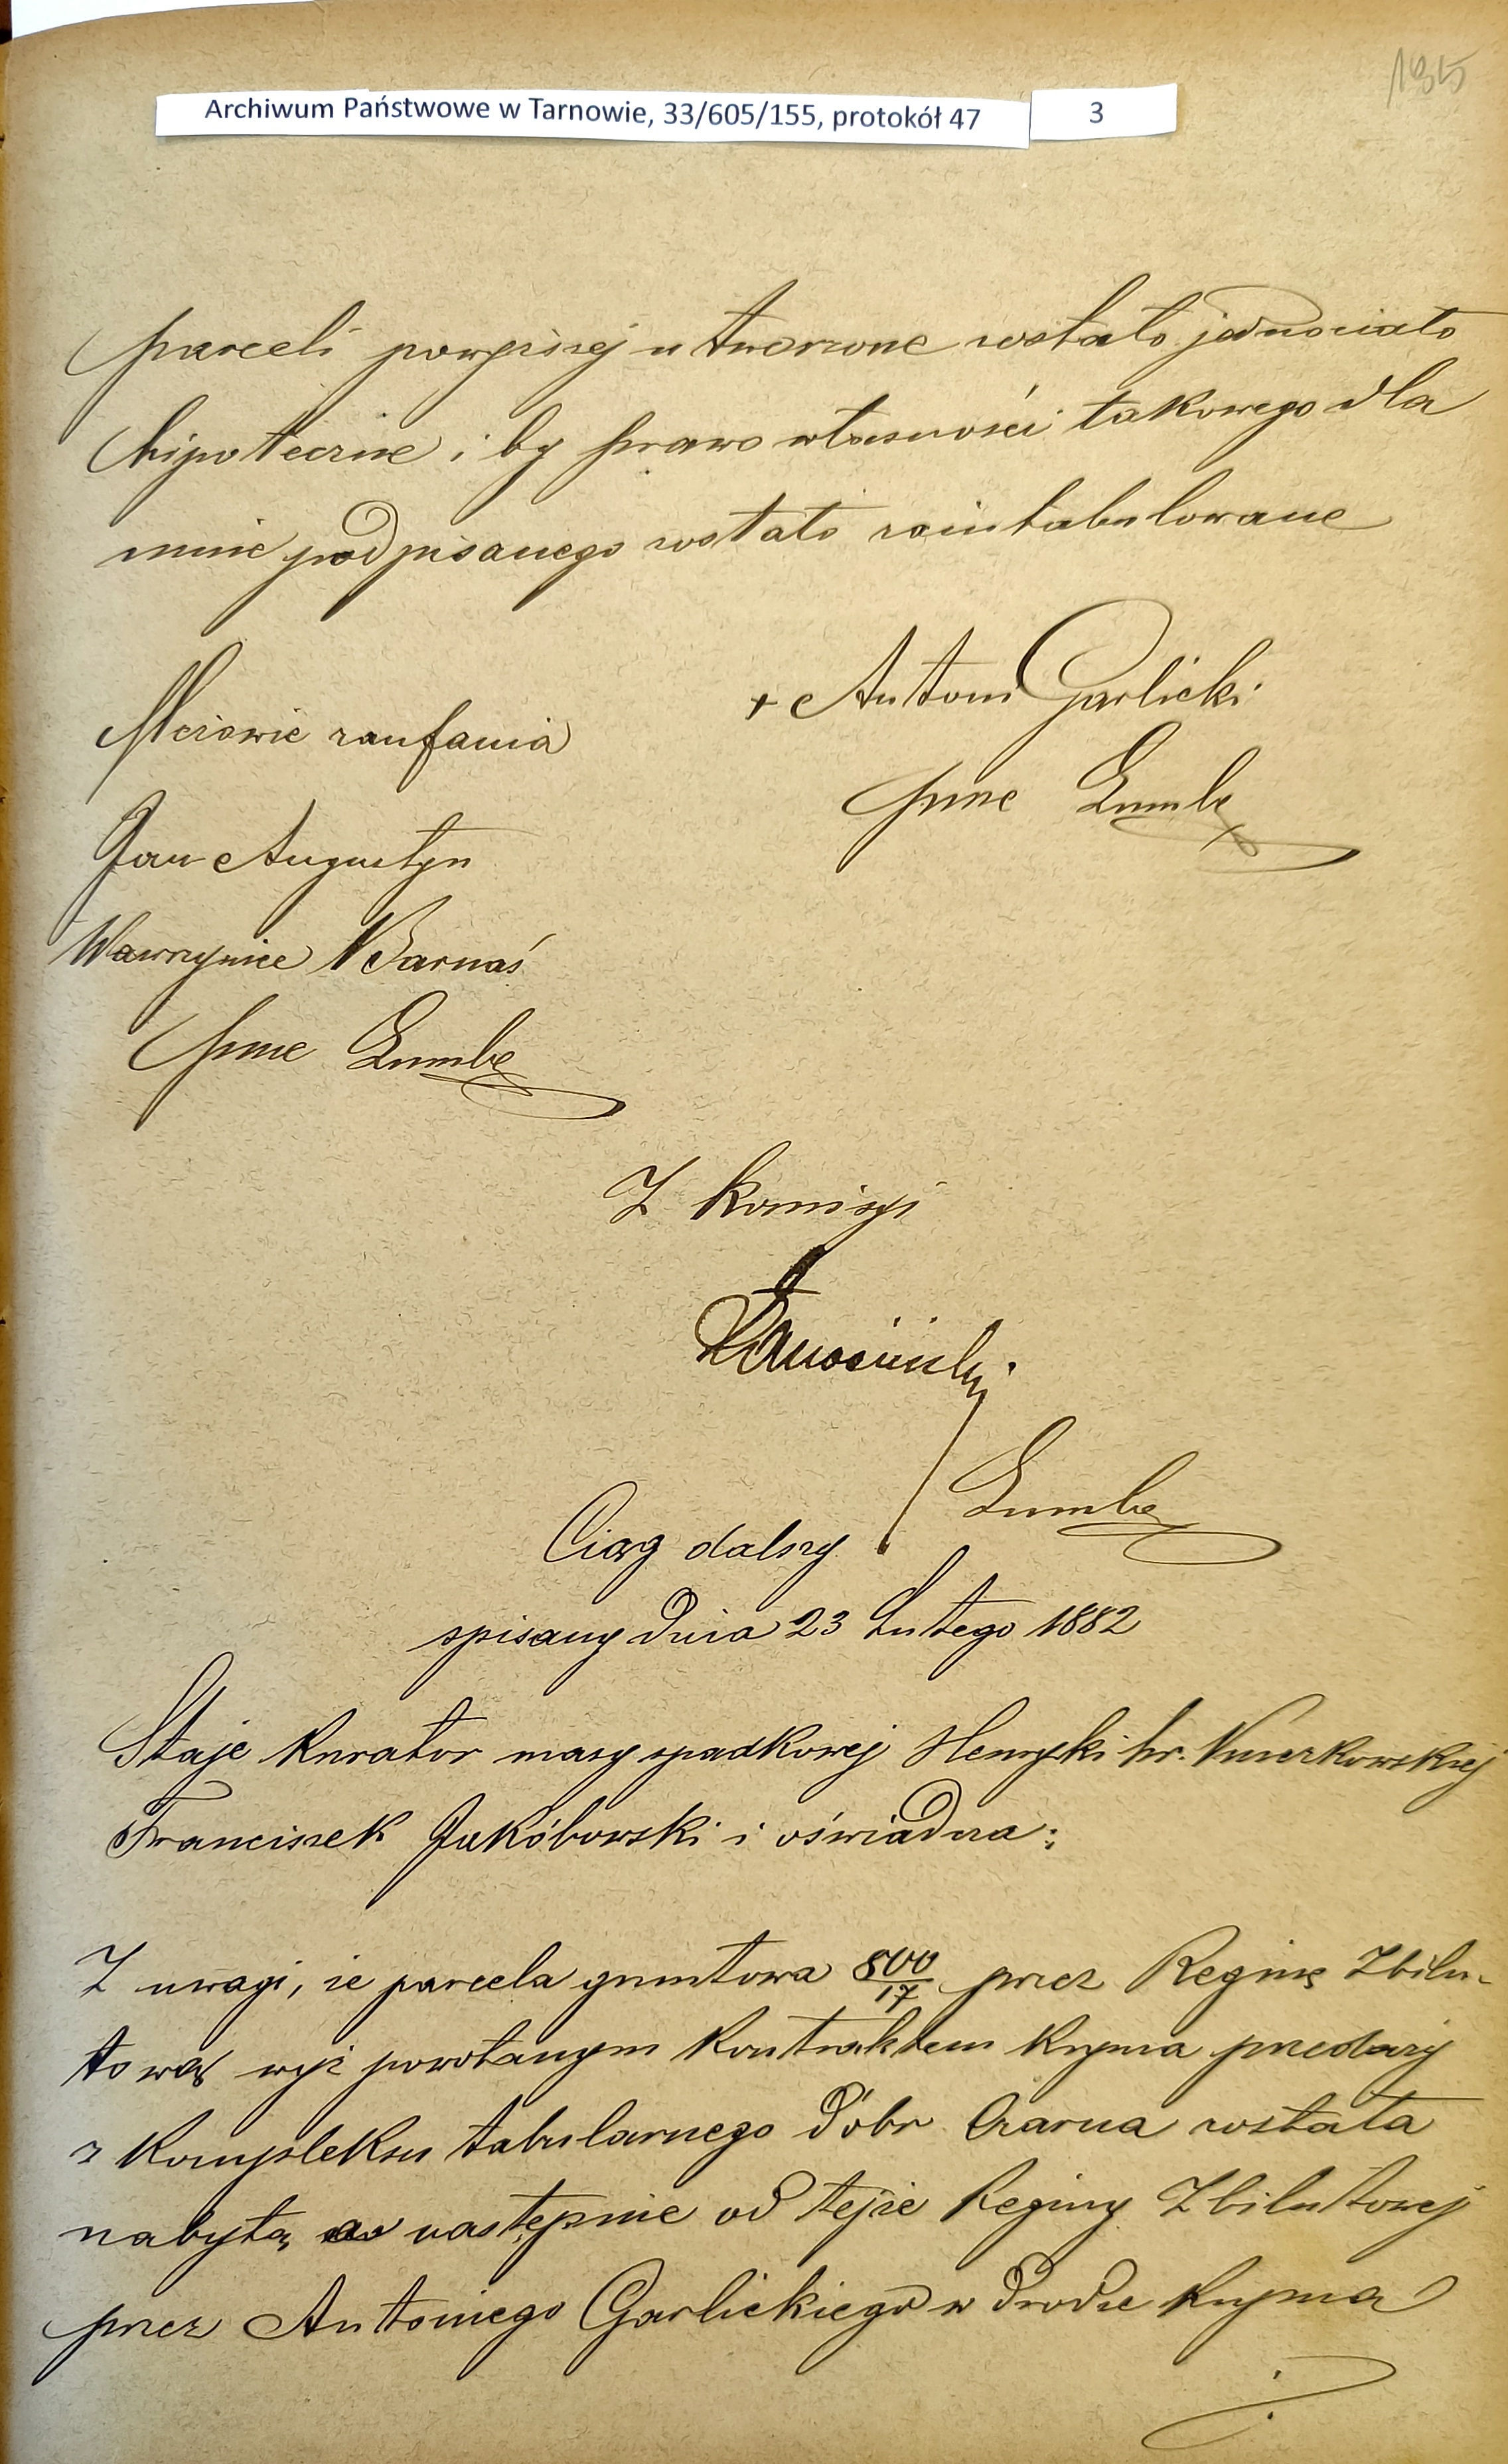 135
Archiwum Państwowe w Tarnowie, 33/605/155, protokół 47 3
parceli powyższej utworzone zostało jednociało
hipoteczne i by prawo własności takowego dla
mnie podpisanego zostało zaintabulowane
Mężowie zaufania
+ Antoni Garlicki
Jan Augustyn
Wawrzyniec Barnaś
Z komisyi
Ciąg dalszy
spisany dnia 23 Lutego 1882
Staje kurator masy spadkowej Henryki hr.
Franciszek Jakóbowski i oświadcza:
Z uwagi, że parcela gruntowa 800/17 przez Reginę Zbilu-
tową wyż powołanym kontraktem kupna przedaży
z kompleksu tabularnego dóbr Czarna została
nabytą, a następnie od tejże Reginy Zbilutowej
przez Antoniego Garlickiego w drodze kupna